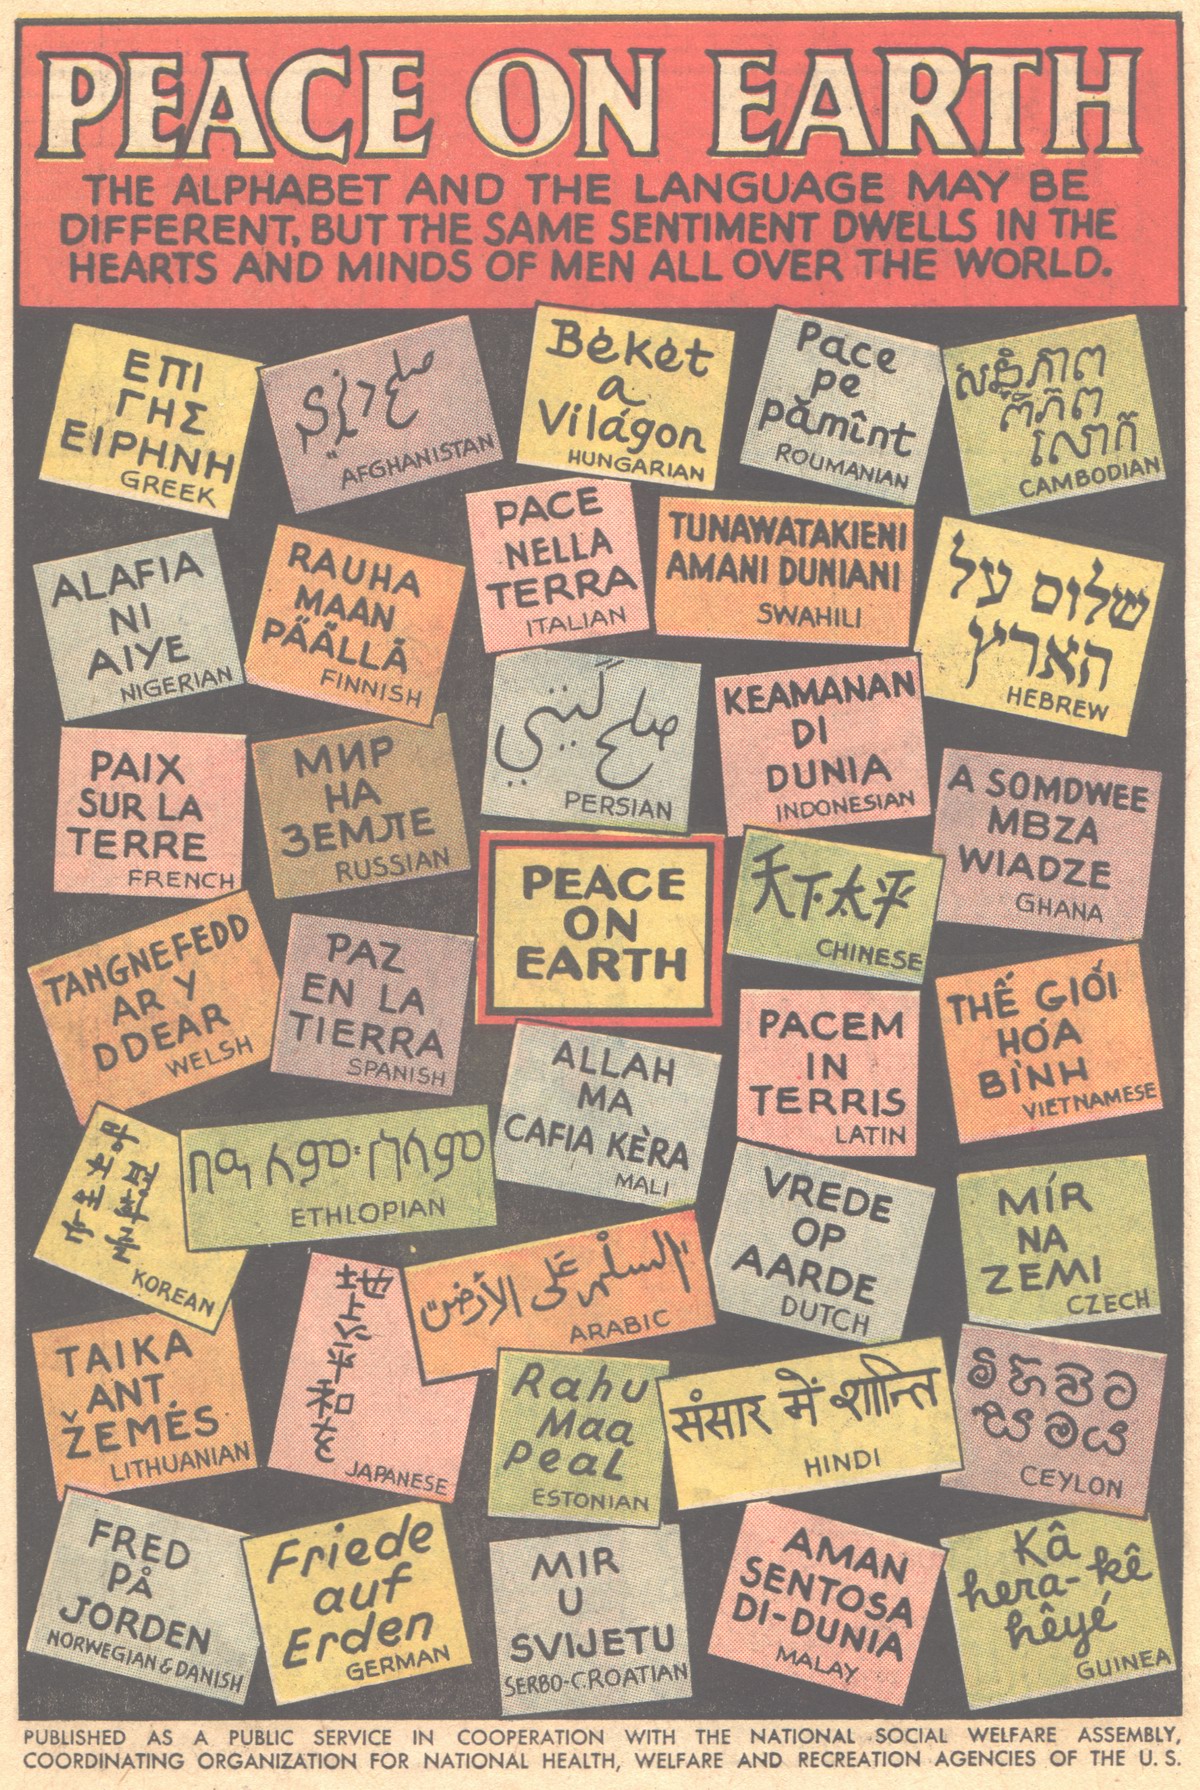 PEACE ON EARTH
THE ALPHABET AND THE LANGUAGE MAY BE
DIFFERENT, BUT THE SAME SENTIMENT DWELLS IN THE
HEARTS AND MINDS OF MEN ALL OVER THE WORLD.
ΕΠΙ
ΓΗΣ
ΕΙΡΗΝΗ
GREEK
صلح
AFGHANISTAN
Bèkèt
a
Világon
HUNGARIAN
Pace
pe
pămînt
ROUMANIAN
CAMBODIAN
ALAFIA
NI
AIYE
NIGERIAN
RAUHA
MAAN
PÄÄLLÄ
FINNISH
PACE
NELLA
TERRA
ITALIAN
TUNAWATAKIENI
AMANI DUNIANI
SWAHILI
שלום על
הארץ
HEBREW
PAIX
SUR LA
TERRE
FRENCH
МИР
НА
ЗЕМЛЕ
RUSSIAN
صلح گیتی
PERSIAN
KEAMANAN
DI
DUNIA
INDONESIAN
A SOMDWEE
MBZA
WIADZE
GHANA
TANGNEFEDD
AR Y
DDEAR
WELSH
PAZ
EN LA
TIERRA
SPANISH
PEACE
ON
EARTH
天下太平
CHINESE
PACEM
IN
TERRIS
LATIN
THẾ GIỚI
HÓA
BÌNH
VIETNAMESE
KOREAN
ETHIOPIAN
ALLAH
MA
CAFIA KÈRA
MALI
VREDE
OP
AARDE
DUTCH
MÍR
NA
ZEMI
CZECH
TAIKA
ANT
ŽEMÉS
LITHUANIAN
JAPANESE
السلام على الأرض
ARABIC
Rahu
Maa
Peal
ESTONIAN
संसार में शान्ति
HINDI
CEYLON
FRED
PÅ
JORDEN
NORWEGIAN & DANISH
Friede
auf
Erden
GERMAN
MIR
U
SVIJETU
SERBO-CROATIAN
AMAN
SENTOSA
DI-DUNIA
MALAY
Kâ
hera-kê
hêyé
GUINEA
PUBLISHED AS A PUBLIC SERVICE IN COOPERATION WITH THE NATIONAL SOCIAL WELFARE ASSEMBLY,
COORDINATING ORGANIZATION FOR NATIONAL HEALTH, WELFARE AND RECREATION AGENCIES OF THE U. S.